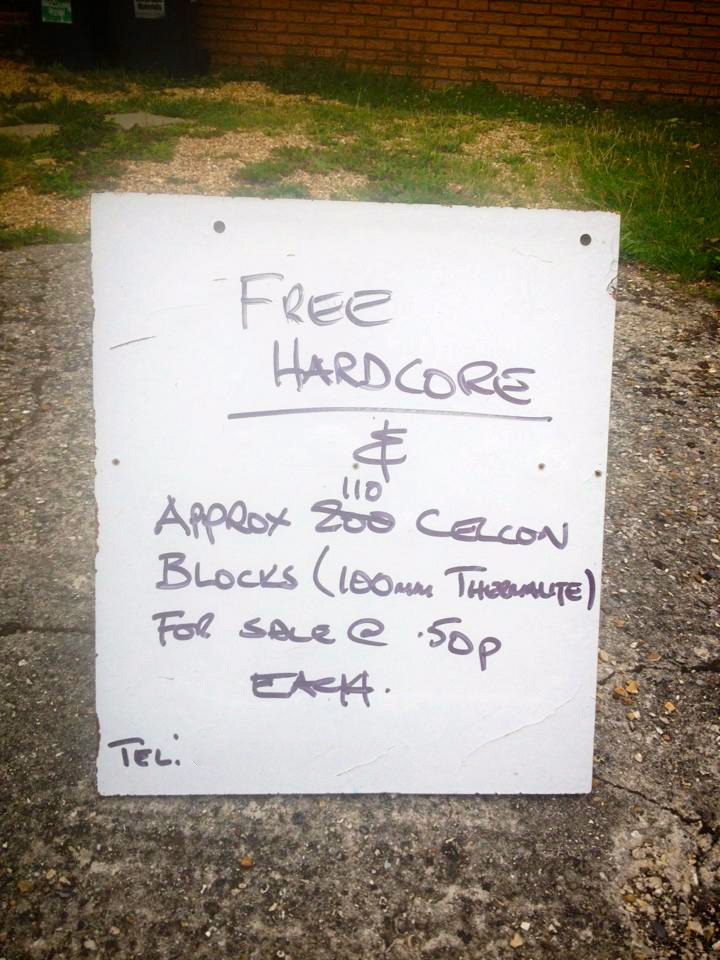 FREE
HARDCORE
&
110
APPROX 200 CELCON
BLOCKS (100mm THERMALITE)
FOR SALE @ .50p
EACH.
TEL: